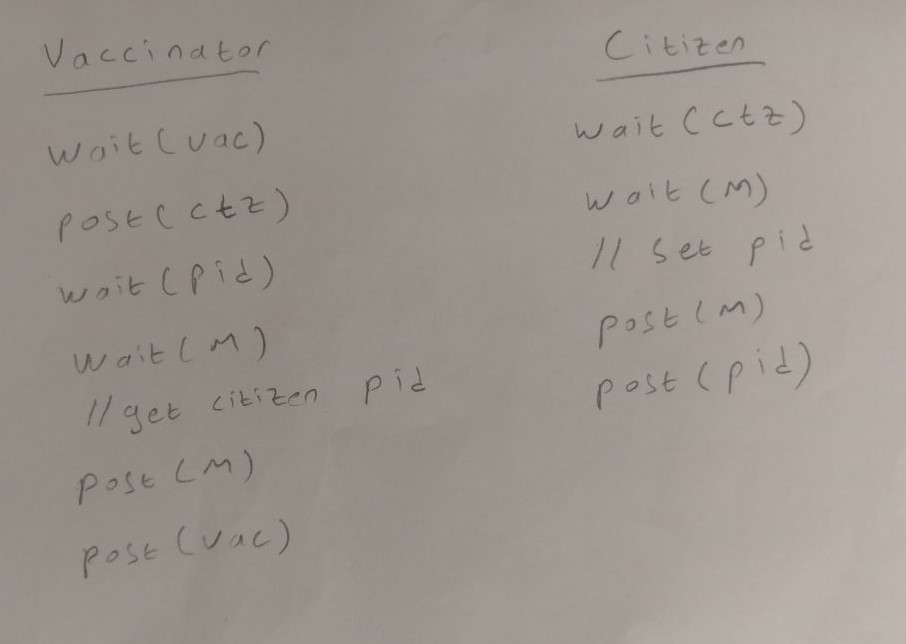 Vaccinator
wait(vac)
post(ctz)
wait(pid)
wait(M)
//get citizen pid
post(M)
post(vac)
Citizen
wait(ctz)
wait(M)
// set pid
post(M)
post(pid)